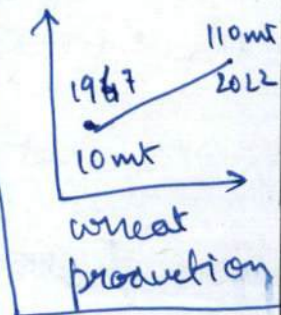 110mt
1947 2022
10mt
wheat
production